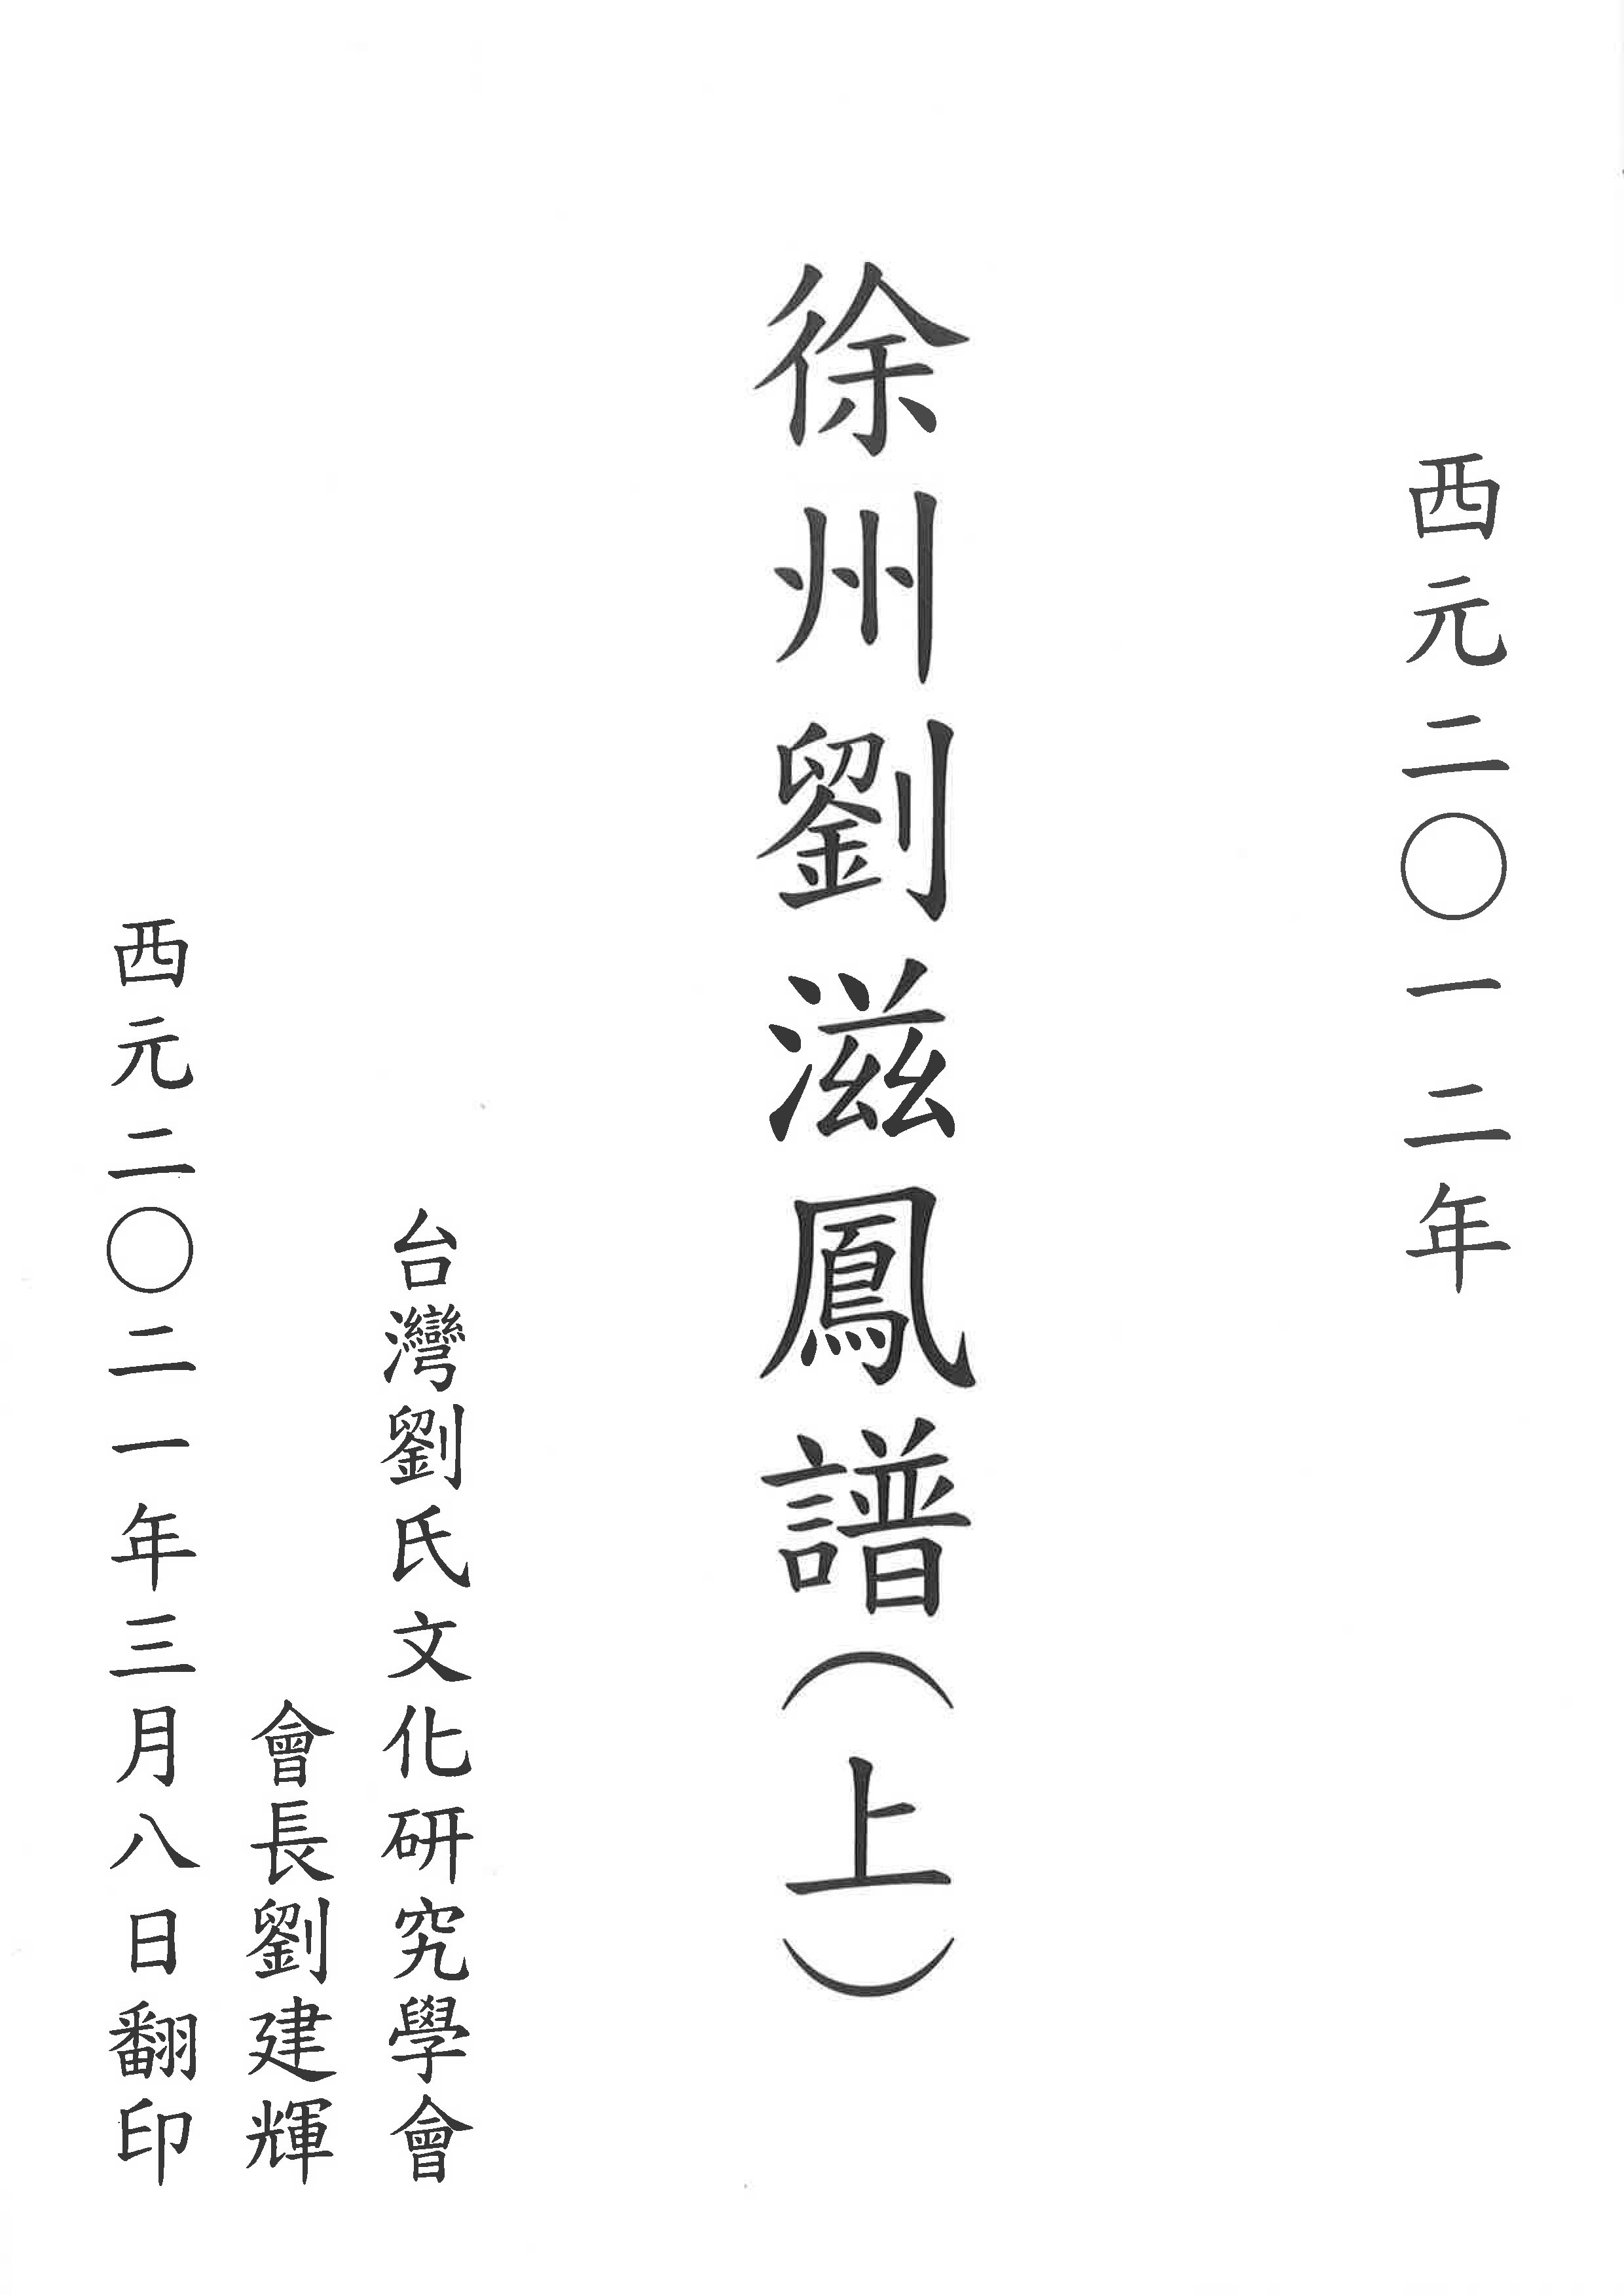 西元二〇一二年
徐州劉滋鳳譜（上）
台灣劉氏文化研究學會
會長劉建輝
西元二〇二一年三月八日翻印